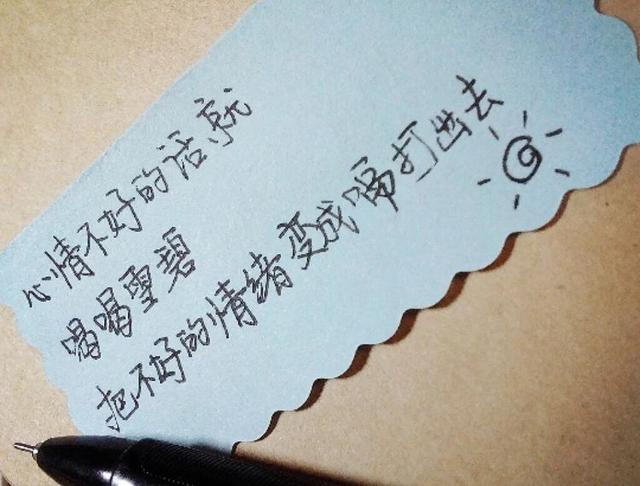 心情不好的话,就
喝喝雪碧
把不好的情绪变成嗝打出去